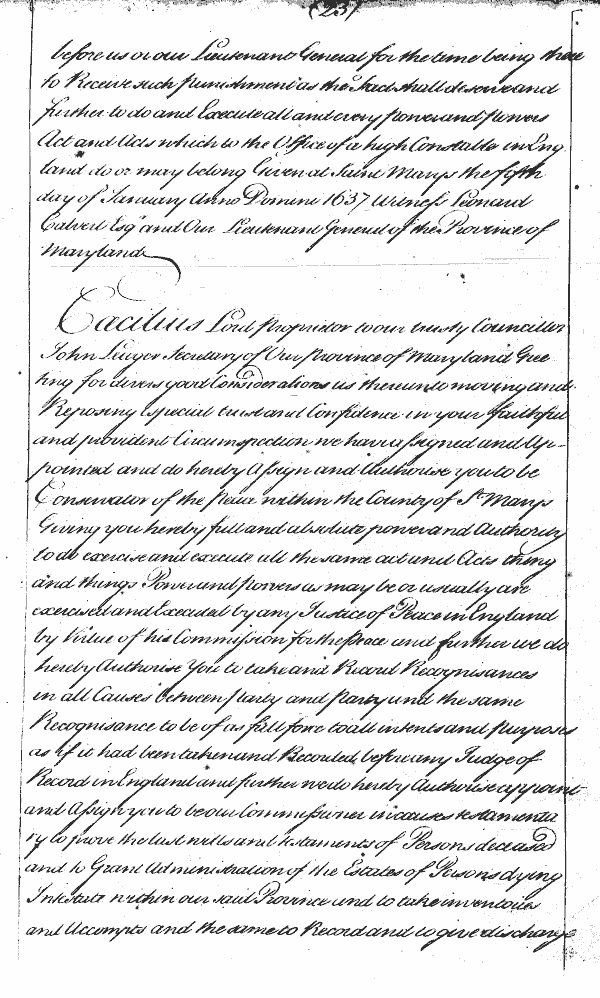 (23)
before us or our Lieutenant General for the time being there
to Receive such punishment as the fact shall deserve and
further to do and Execute all and every power and powers
Act and Acts which to the Office of a high Constable in Eng
land do or may belong Given at Saint Marys the fifth
day of January Anno Domini 1637 Witness Leonard
Calvert Esqr and Our Lieutenant General of the Province of
Maryland
Cæcilius Lord Proprietor to our trusty Councillor
John Lewger Secretary of Our Province of Maryland Gree
ting for divers good Considerations us thereunto moving and
Reposing especial trust and Confidence in your faithful
and provident Circumspection we have assigned and Ap-
pointed and do hereby Assign and Authorise you to be
Conservator of the Peace within the County of St Marys
Giving you hereby full and absolute power and Authority
to do exercise and execute all the same act and Acts thing
and things Power and powers as may be or usually are
exercised and Executed by any Justice of Peace in England
by Virtue of his Commission for the Peace and further we do
hereby Authorise You to take and Record Recognisances
in all Causes between party and Party and the same
Recognisance to be of as full force to all intents and purposes
as if it had been taken and Recorded before any Judge of
Record in England and further we do hereby Authorise appoint
and Assign you to be our Commissioner in causes testamenta
ry to prove the last wills and testaments of Persons deceased
and to Grant Administration of the Estates of Persons dying
Intestate within our said Province and to take inventories
and Accompts and the same to Record and to give discharge